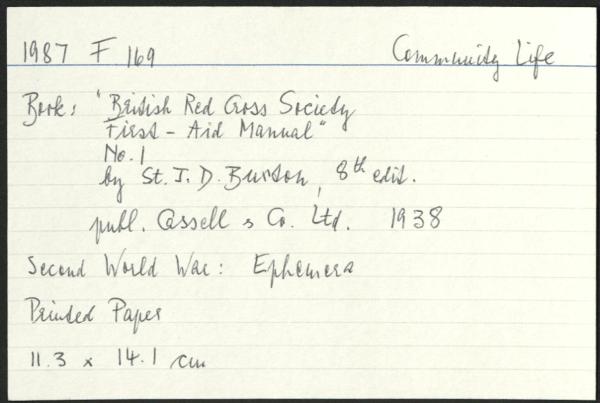 1987 F 169 Community Life
Book: "British Red Cross Society
First - Aid Manual"
No. 1
by St. J. D. Buxton, 8th edit.
publ. Cassell & Co. Ltd. 1938
Second World War: Ephemera
Printed Paper
11.3 x 14.1 cm